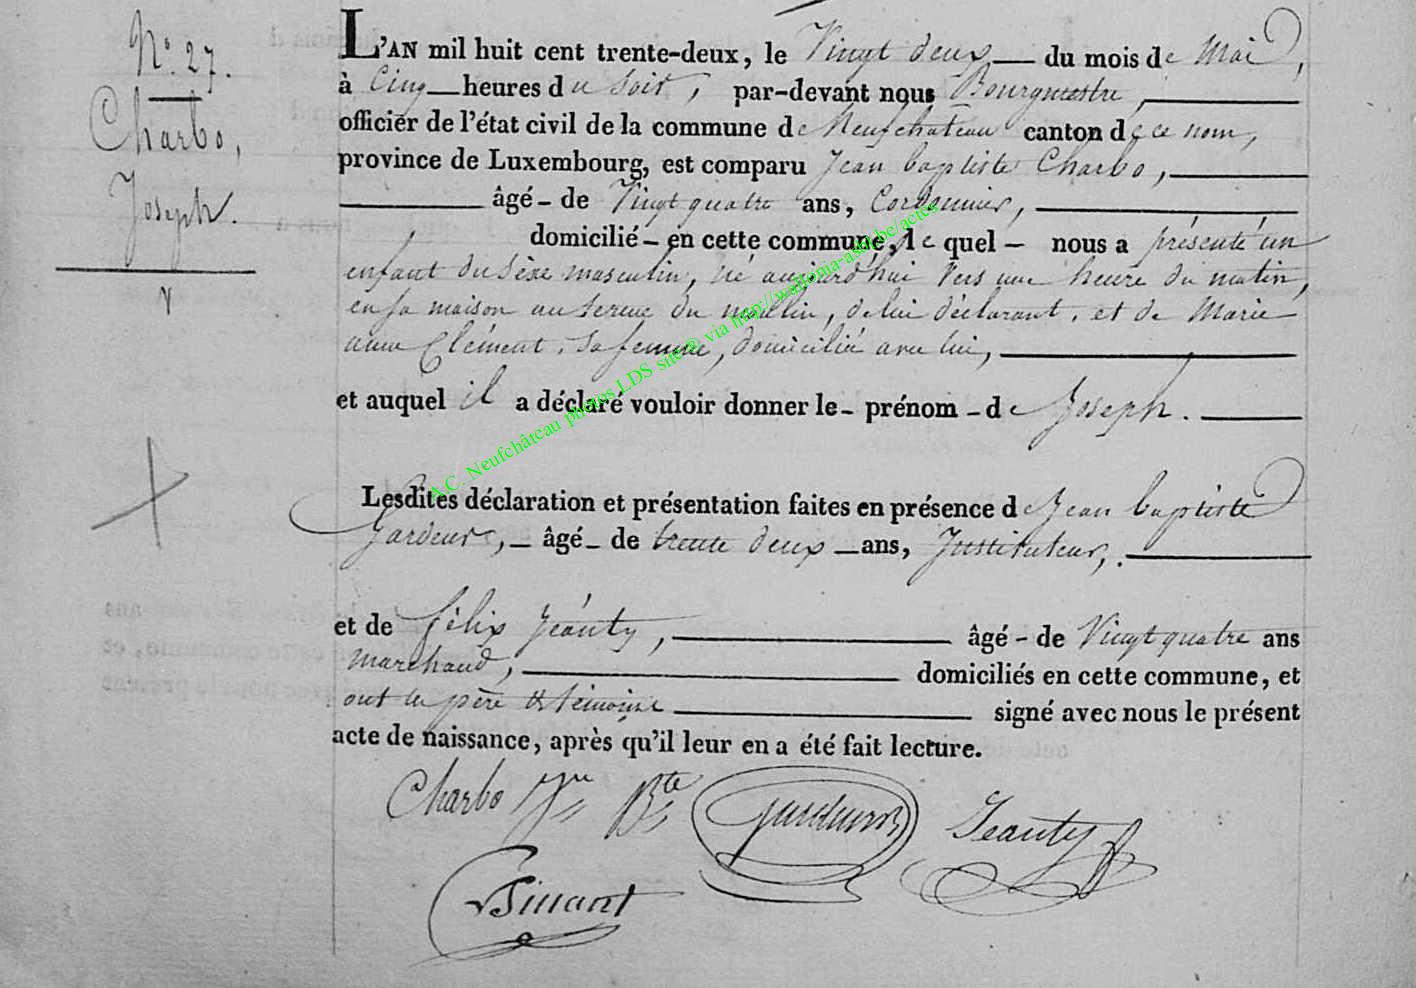 N.° 27.
Charbo,
Joseph.
L'AN mil huit cent trente-deux, le Vingt deux du mois de Mai,
à Cinq heures du soir, par-devant nous Bourgmestre,
officier de l'état civil de la commune de Neufchateau canton de ce nom,
province de Luxembourg, est comparu Jean baptiste Charbo,
âgé - de Vingt quatre ans, Cordonnier,
domicilié - en cette commune, le quel - nous a présenté un
enfant du sèxe masculin, né aujourd'hui vers une heure du matin,
en sa maison au terme du moulin, de lui déclarant, et de Marie
anne Clément, sa femme, domiciliée avec lui,
et auquel il a déclaré vouloir donner le - prénom - de Joseph.
Lesdites déclaration et présentation faites en présence de Jean baptiste
Gardeur, - âgé - de trente deux ans, Instituteur,
et de félix Jéanty, âgé - de Vingt quatre ans
marchand, domiciliés en cette commune, et
ont le père & témoins signé avec nous le présent
acte de naissance, après qu'il leur en a été fait lecture.
Charbo Jn Bte Gardeur Jeanty
A.C. Neufchâteau photos LDS site® via http://wallonia-asbl.be/actes